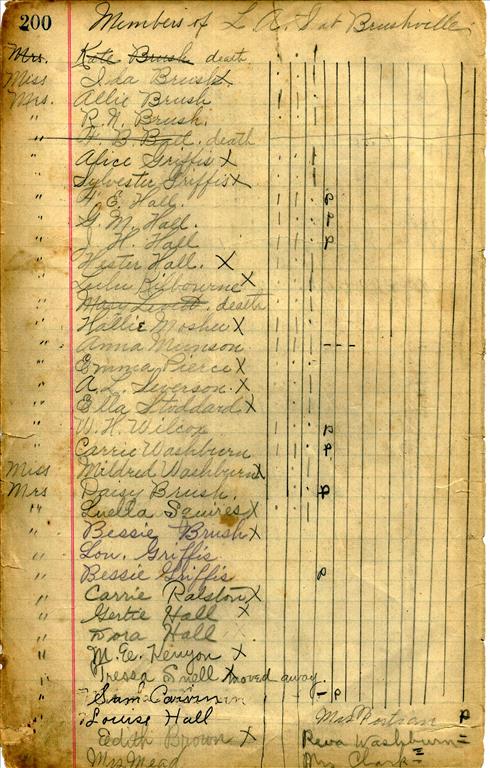 200 Members of L A. S at Brushville
Mrs. Kate Brush death
Miss Ida Brush X
Mrs. Allie Brush
" R. N. Brush.
" death
" Alice Griffis X
" Sylvester Griffis X
" F. E. Hall P
" G. M. Hall. P
" H. Hall P
" Hester Hall. X
" Lulu Kilbourne X
" Mary death
" Hallie Mosher X
" Anna Munson - - -
" Emma Pierce X
" A. L. Severson. X
" Ella Stoddard X
" W. H. Wilcox P
" Carrie Washburn P
Miss Mildred Washburn X
Mrs Daisy Brush. P
" Luella Squires X
" Bessie Brush X
" Lou. Griffis
" Bessie Griffis P
" Carrie Ralston X
" Gertie Hall X
" Dora Hall
" M. E. Kenyon X
" Tressa Snell X moved away.
" Sam Carvin - P
" Louise Hall Mrs P
" Edith Brown X Reva Washburn =
Mrs Mead Mrs Clark =